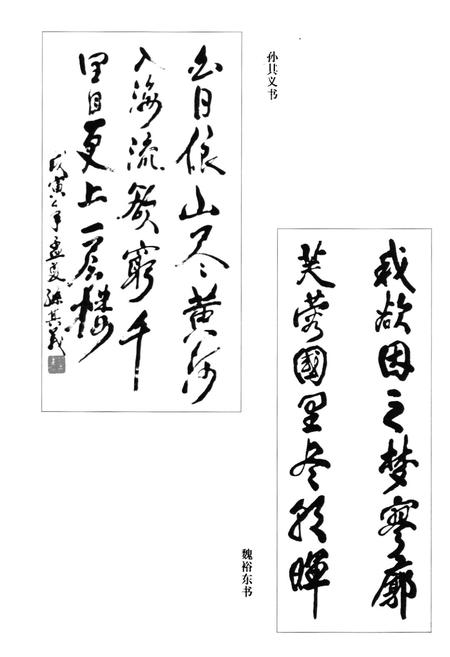 孙其义书
白日依山尽黄河
入海流欲窮千
里目更上一层楼
戊寅年孟夏孫其義
我欲因之梦寥廓
芙蓉國里尽朝暉
魏裕东书